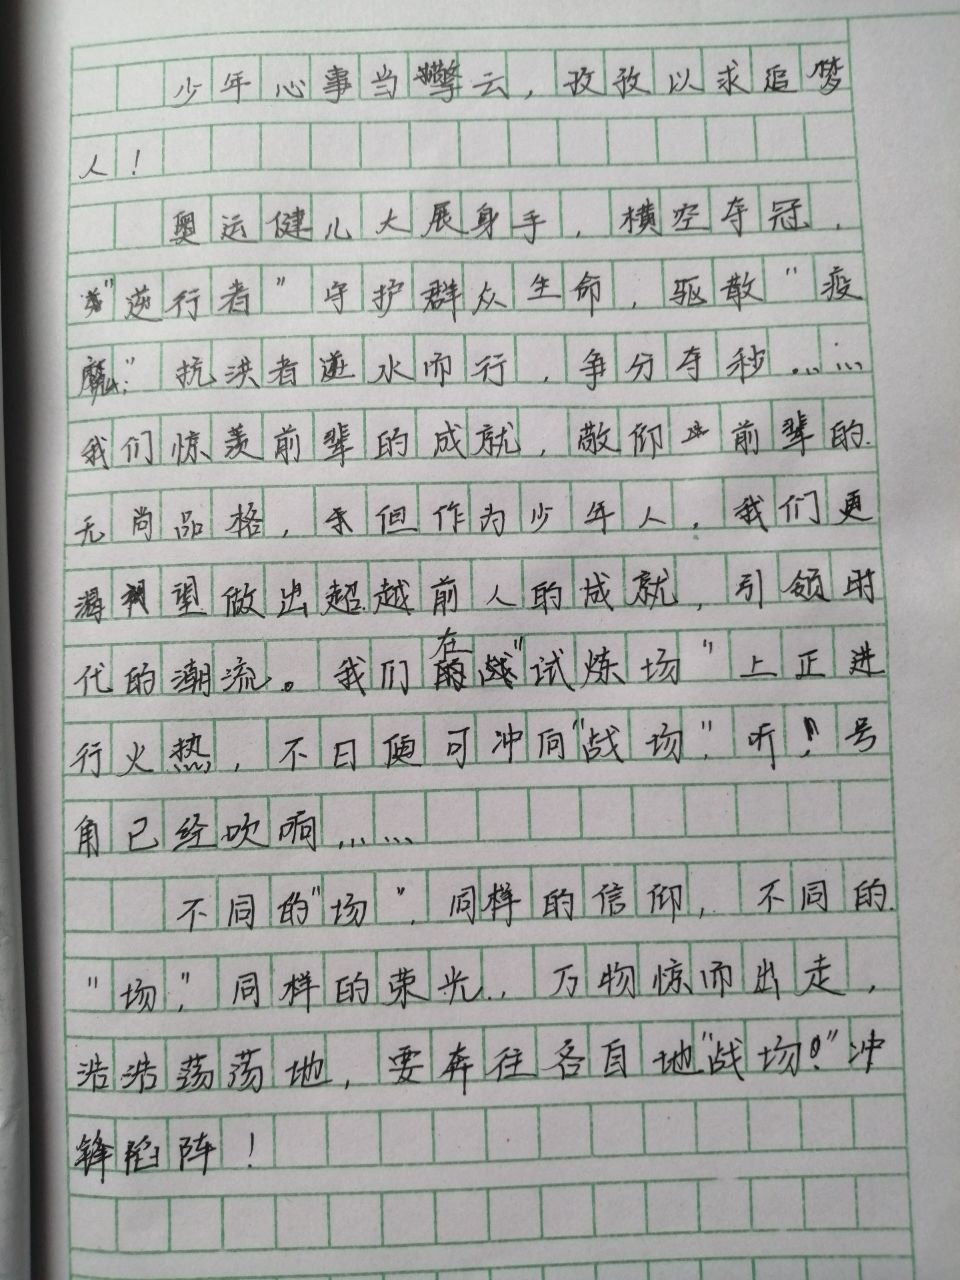 少年心事当擎云，孜孜以求追梦
人！
奥运健儿大展身手，横空夺冠，
"逆行者"守护群众生命，驱散"疫
魔"；抗洪者逆水而行，争分夺秒……
我们惊羡前辈的成就，敬仰前辈的
无尚品格，但作为少年人，我们更
渴望做出超越前人的成就，引领时
代的潮流。我们在"试炼场"上正进
行火热，不日便可冲向"战场"，听！号
角已经吹响……
不同的"场"，同样的信仰，不同的
"场"，同样的荣光..，万物惊而出走，
浩浩荡荡地，要奔往各自地"战场！"冲
锋陷阵！